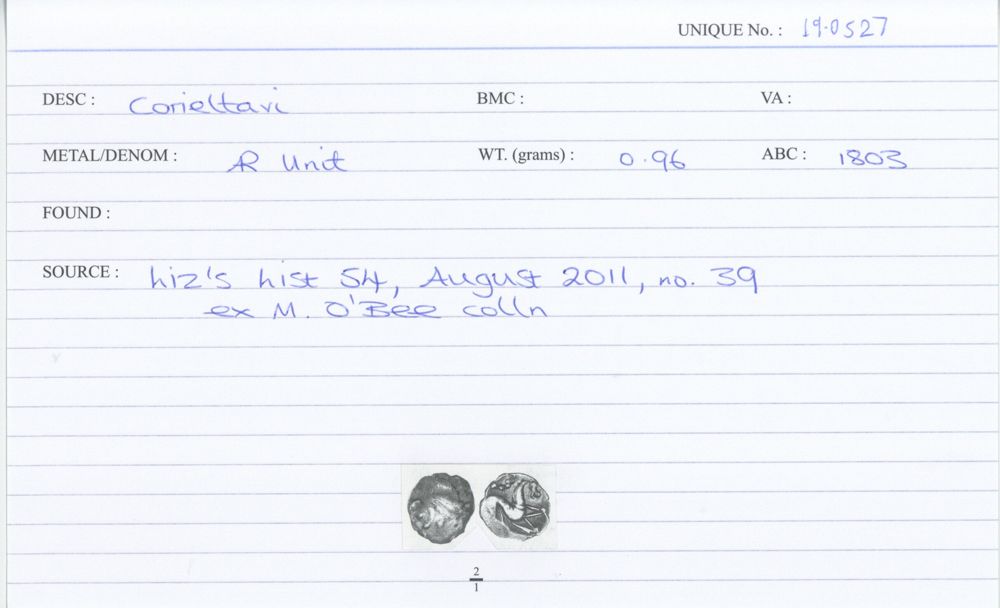 UNIQUE No. : 19.0527
DESC : Corieltavi BMC : VA :
METAL/DENOM : AR Unit WT. (grams) : 0.96 ABC : 1803
FOUND :
SOURCE : Liz's list 54, August 2011, no. 39
ex M. O'Bee colln
2
1